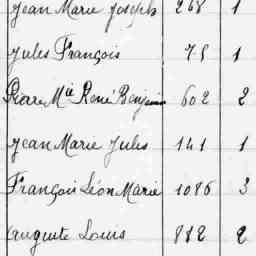 Jean Marie Joseph 268 1
Jules François 75 1
Pierre Mie René Benjamin 602 2
Jean Marie Jules 141 1
François Léon Marie 1086 3
Auguste Louis 882 2